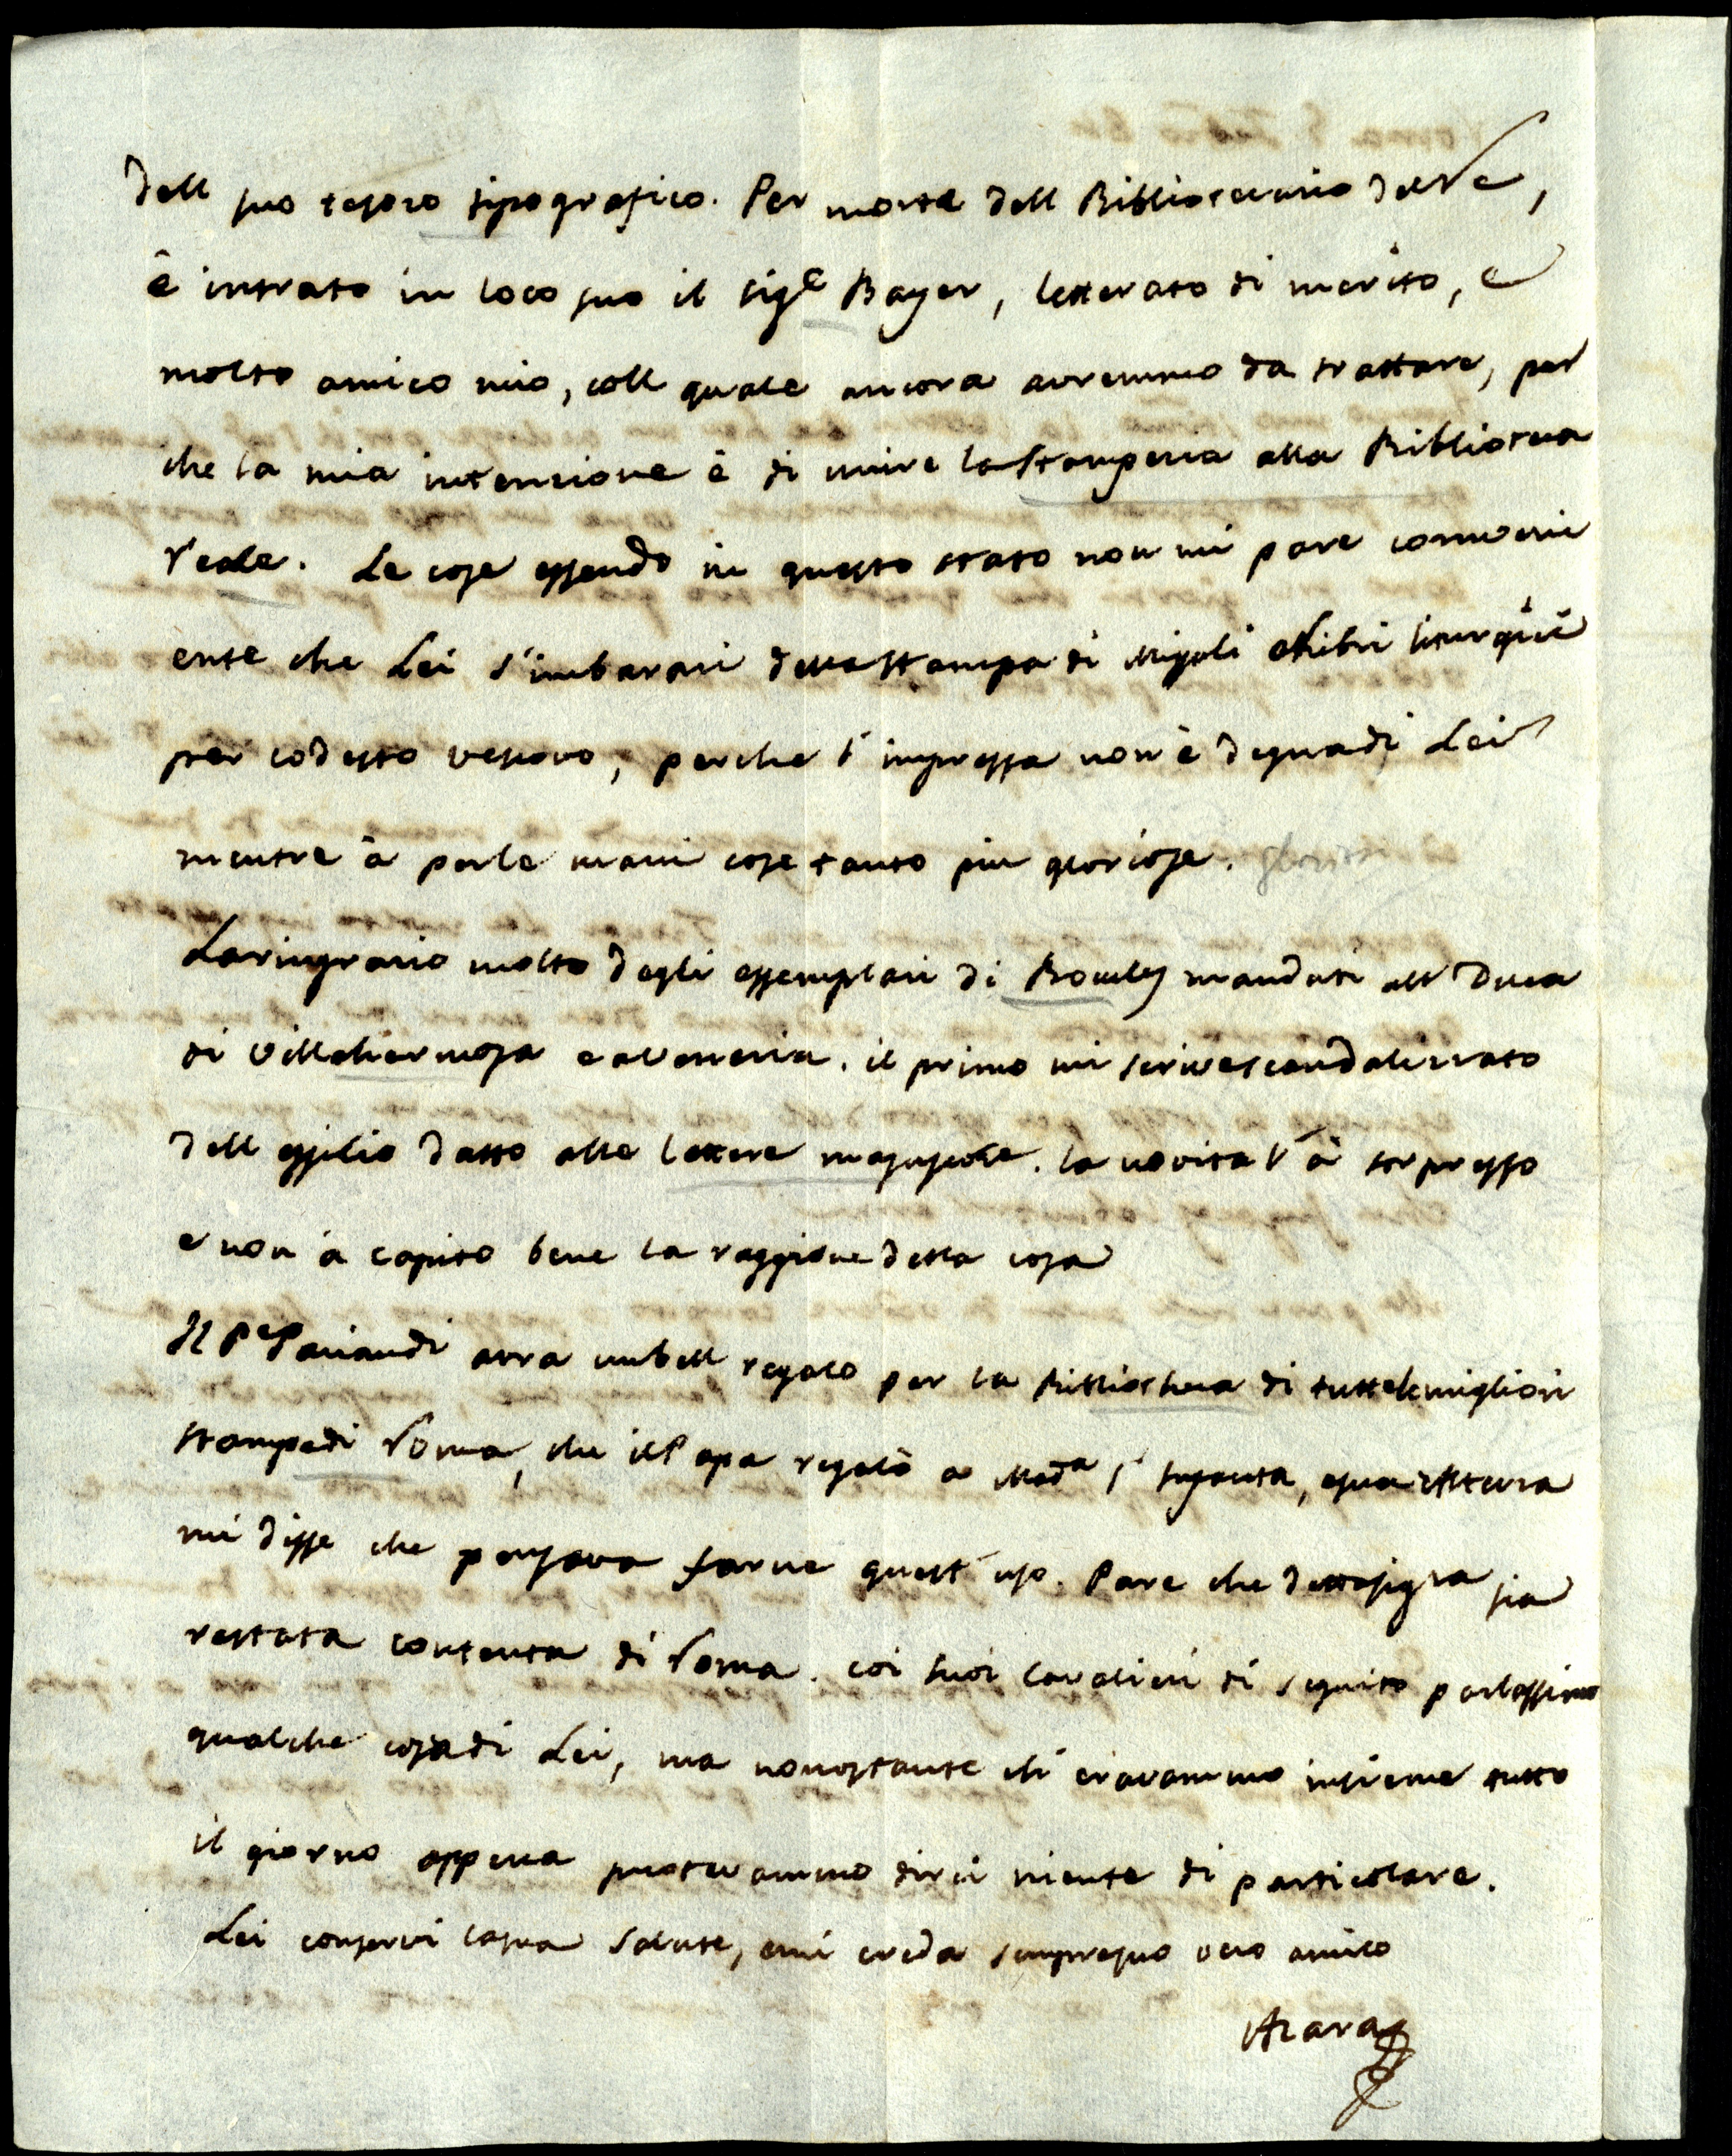 dell suo tesoro tipografico. Per morte dell Bibliotecario del Re,
è intrato in loco suo il sigr Bayer, letterato di merito, e
molto amico mio, coll quale ancora avremmo da trattare, per
che la mia intenzione è di unire la stamperia alla Biblioteca
reale. Le cose essendo in questo stato non mi pare conveni
ente che Lei s'imbarazi della stampa di Missali e libri liturgici
per codesto vescovo, perche l'impressa non è degna di Lei
mentre à per le mani cose tanto piu gloriose. gloriose
La ringrazio molto degli essemplari di mandati all Duca
di Villahermosa e a Llerena. il primo mi scrive scandalizzato
dell essilio datto alle lettere majuscole. la novita l'à sorpresso
e non à capito bene la raggione della cosa
Il Pe Paciaudi avra un bell regalo per la Bibliotheca di tutte le migliori
stampe di Roma, che il Papa regalò a Mada l'Infanta, e sua Altezza
mi disse che pensava farne quest'uso. Pare che detta sigra sia
restata contenta di Roma. coi suoi Cavalieri di seguito parlassimo
qualche cosa di Lei, ma nonostante chi eravammo insieme tutto
il giorno appena puotevammo dirci niente di particolare.
Lei conservi la sua salute, e mi creda sempre suo vero amico
Azara